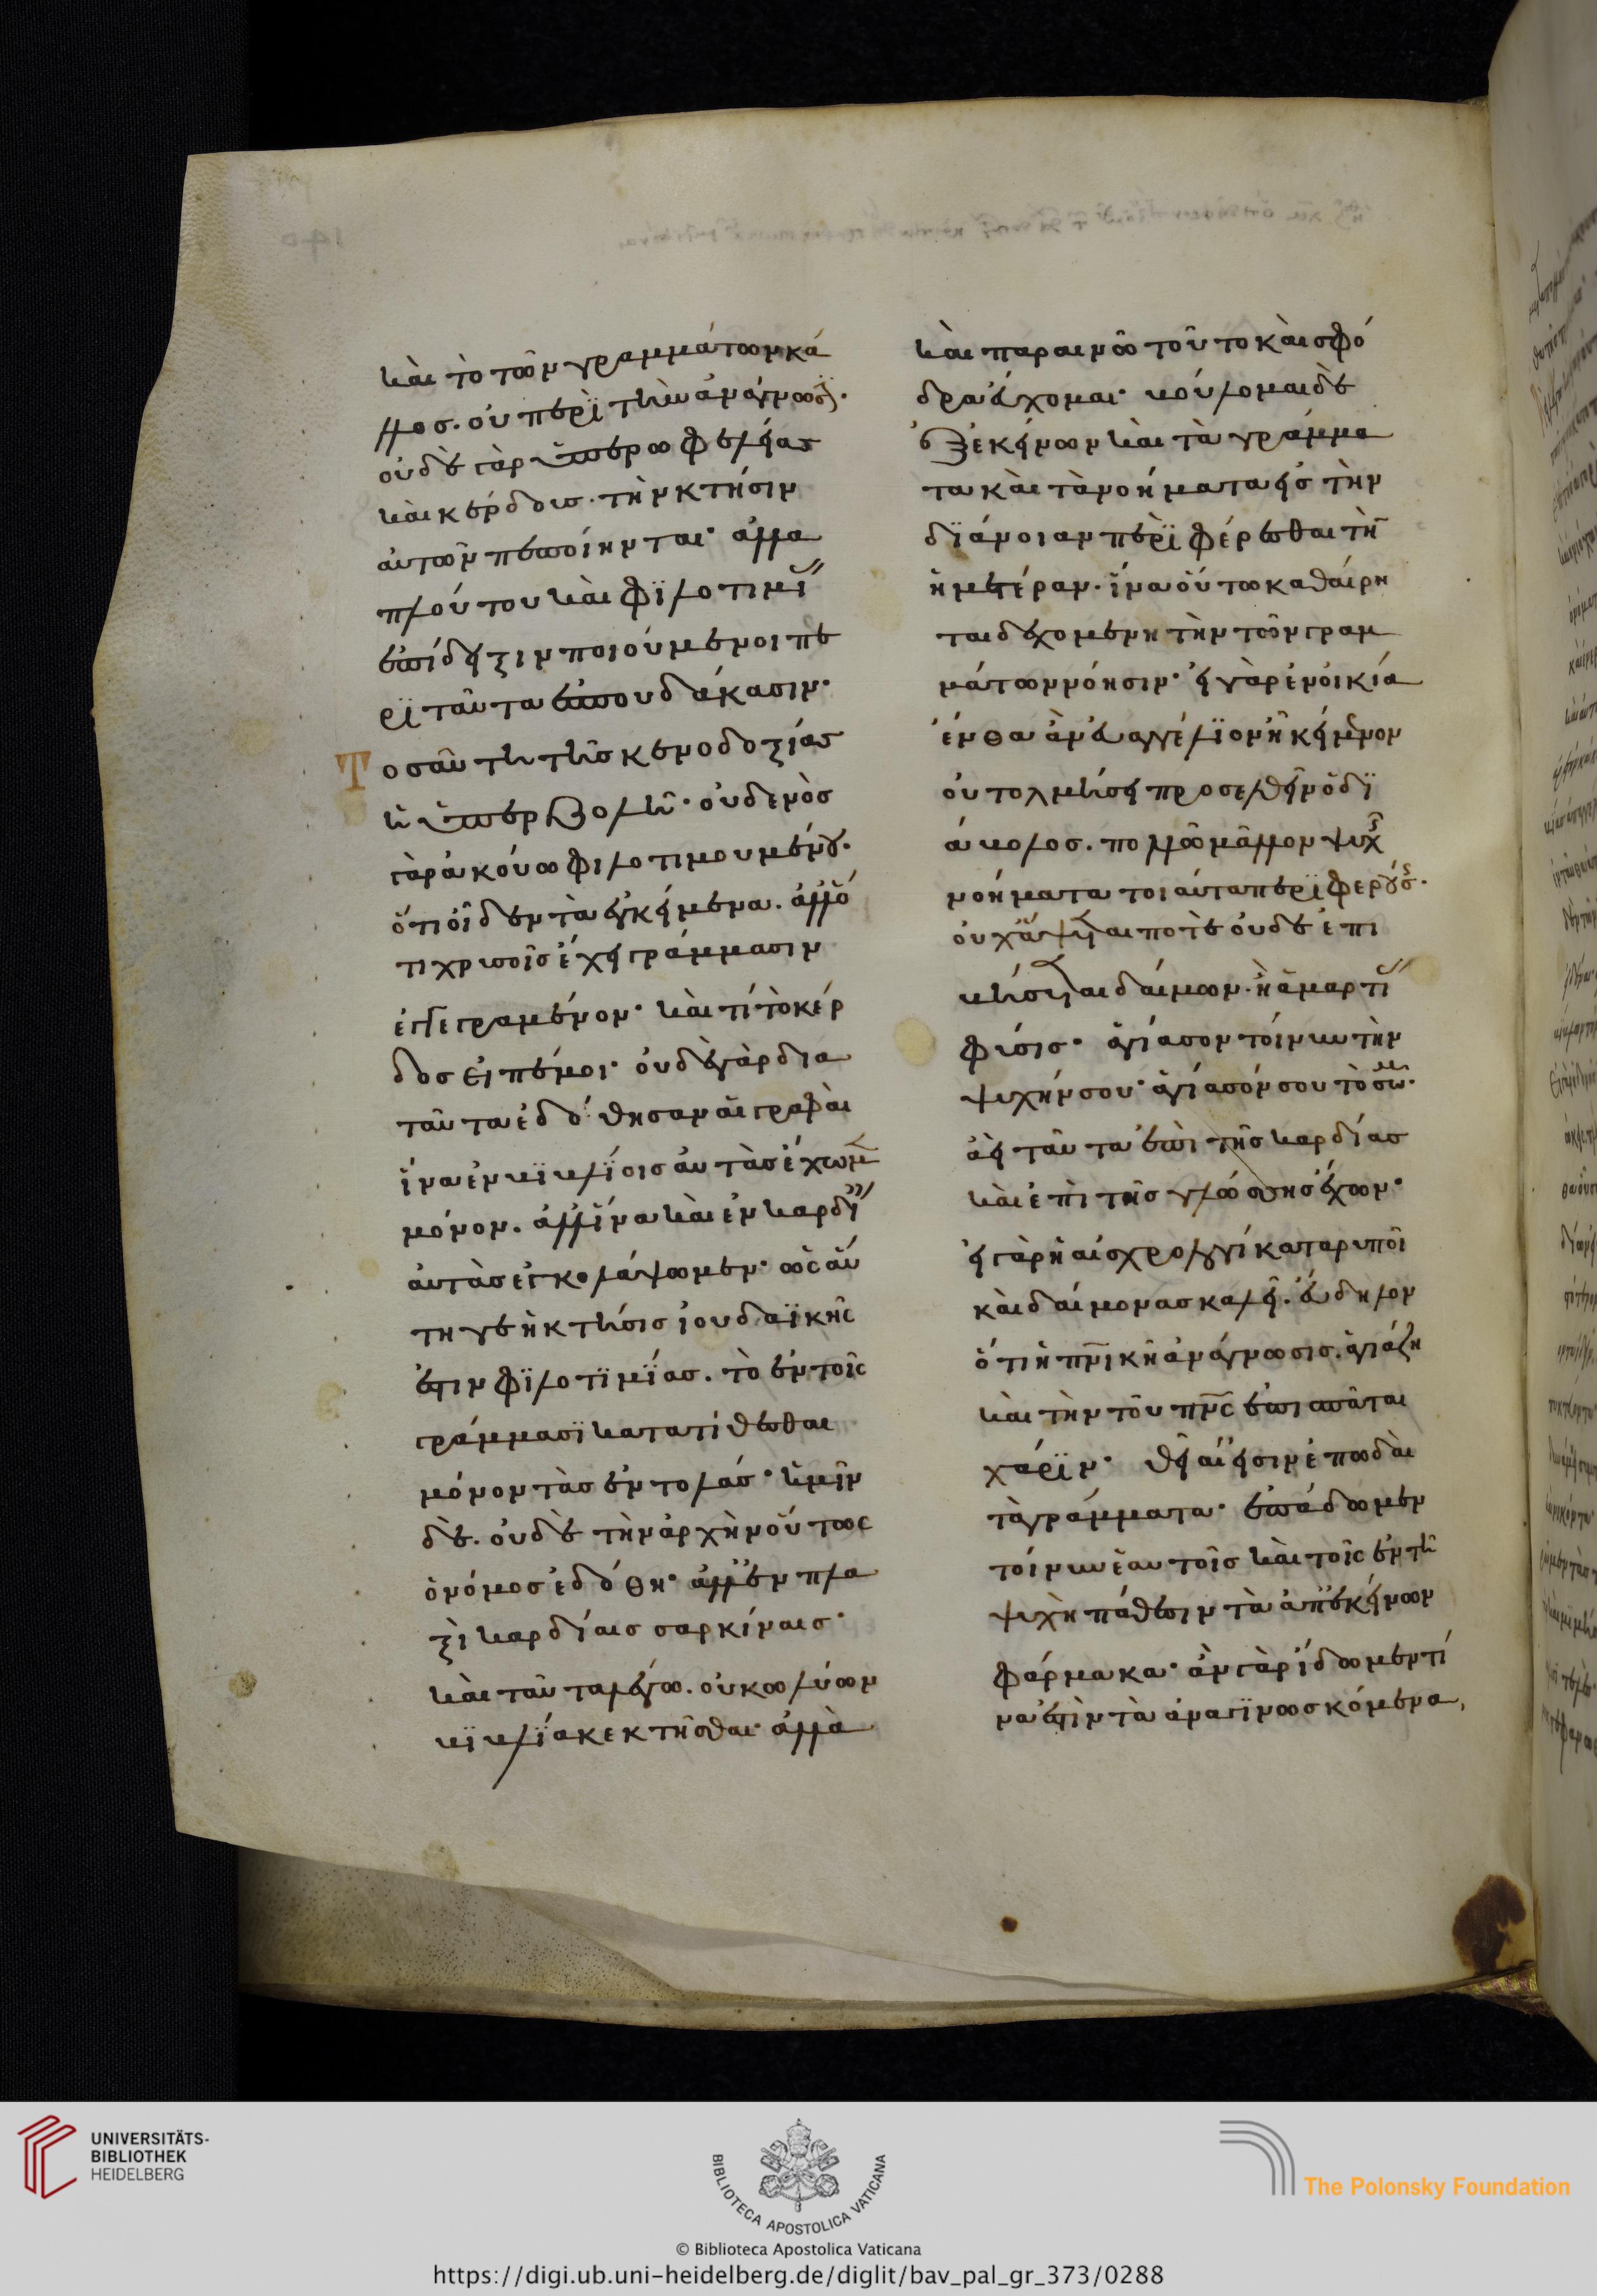 140
καὶ τὸ τῶν γραμμάτων κά
λλος. οὐ περὶ τὴν ἀνάγνωσ(ιν).
οὐδὲ γὰρ ὑπὲρ ὠφελείας
καὶ κέρδους. τὴν κτῆσιν
αὐτῶν πεποίηνται· ἀλλὰ
πλούτου καὶ φιλοτιμί(ας)
ἐπίδειξιν ποιούμενοι πε
ρὶ ταῦτα ἐσπουδάκασιν·
Τοσαύτη τῆς κενοδοξίας
ἡ ὑπερβολή· οὐδενὸς
γὰρ ἀκούω φιλοτιμουμένου.
ὅτι οἶδεν τὰ ἐγκείμενα. ἀλλ' ὅ
τι χρυσοῖς ἔχει γράμμασιν
ἐγγεγραμμένον· καὶ τί τὸ κέρ
δος εἰπέ μοι· οὐδὲ γὰρ δια
ταῦτα ἐδόθησαν αἱ γραφαὶ
ἵνα ἐν βιβλίοις αὐτὰς ἔχωμ(εν)
μόνον. ἀλλ' ἵνα καὶ ἐν καρδί(αις)
αὐτὰς ἐγκολάψωμεν· ὡς αὕ
τη γε ἡ κτῆσις ἰουδαϊκῆς
ἐστιν φιλοτιμίας. τὸ ἐν τοῖς
γράμμασι κατατίθεσθαι
μόνον τὰς ἐντολάς· ἡμῖν
δὲ. οὐδὲ τὴν ἀρχὴν οὕτως
ὁ νόμος ἐδόθη· ἀλλ' ἐν πλα
ξὶ καρδίαις σαρκίναις·
καὶ ταῦτα λέγω. οὐ κωλύων
βιβλία κεκτῆσθαι· ἀλλὰ
καὶ παραινῶ τοῦτο καὶ σφό
δρα εὔχομαι· βούλομαι δὲ
ἐξ ἐκείνων καὶ τὰ γράμμα
τα καὶ τὰ νοήματα εἰς τὴν
διάνοιαν περιφέρεσθαι τὴ(ν)
ἡμετέραν. ἵνα οὕτω καθαίρη
ται δεχομένη τὴν τῶν γραμ
μάτων νόησιν· εἰ γὰρ ἐν οἰκία
ἔνθα ἂν εὐαγγέλιον ἦ κείμενον
οὐ τολμήσει προσελθεῖν ὁ δι
άβολος. πολλῶ μᾶλλον ψυχῆς
νοήματα τοιαῦτα περιφερούσης.
οὐχ ἅψεταί ποτε οὐδὲ ἐπι
βήσεται δαίμων. ἢ ἁμαρτί(ας)
φύσις· ἁγίασον τοίνυν τὴν
ψυχήν σου· ἁγίασόν σου τὸ σῶμ(α)·
ἀεὶ ταῦτα ἐπὶ τῆς καρδίας
καὶ ἐπὶ τῆς γλώσσης ἔχων·
εἰ γὰρ ἡ αἰσχρολογία καταρυποῖ
καὶ δαίμονας καλεῖ. εὔδηλον
ὅτι ἡ πνικὴ ἀνάγνωσις. ἁγιάζη
καὶ τὴν τοῦ πνς ἐπισπᾶται
χάριν· θεῖαί εἰσιν ἐπωδαὶ
τὰ γράμματα· ἐπάδωμεν
τοίνυν ἑαυτοῖς καὶ τοῖς ἐν τῆ
ψυχὴ πάθεσιν τὰ ἀπ' ἐκείνων
φάρμακα· ἂν γὰρ εἴδωμεν τί
να ἐστὶν τὰ ἀναγινωσκόμενα,
UNIVERSITÄTS-
BIBLIOTHEK
HEIDELBERG
BIBLIOTECA APOSTOLICA VATICANA
The Polonsky Foundation
© Biblioteca Apostolica Vaticana
https://digi.ub.uni-heidelberg.de/diglit/bav_pal_gr_373/0288